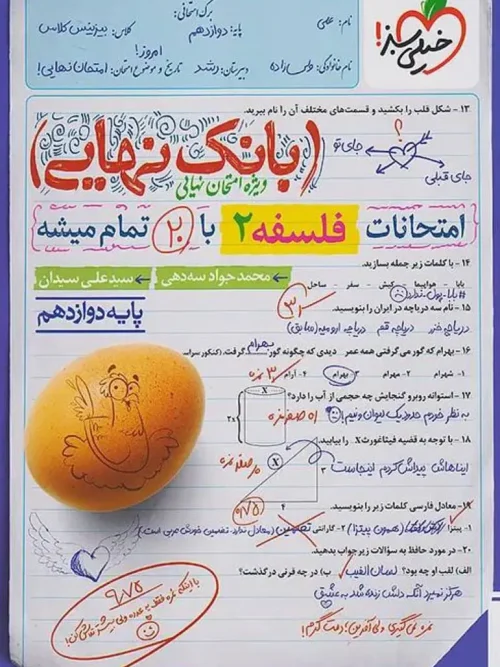 برگ امتحانی:
نام: علی
پایه: دوازدهم
کلاس: بیزینس کلاس
نام خانوادگی:
دبیرستان: رشد
تاریخ و موضوع امتحان: امروز! امتحان نهایی!
خیلی سبز!
۱۳ - شکل قلب را بکشید و قسمت‌های مختلف آن را نام ببرید.
؟
جای تو
جای قبلی
(بانک نهایی)
ویژه امتحان نهایی
امتحانات فلسفه ۲ با ۲۰ تمام میشه
۱۴ - با کلمات زیر جمله بسازید.
بابا - هواپیما - کیش - سفر - ساحل
#بابا_پول_نداره
محمدجواد سه‌دهی
سیدعلی سیدان
پایه دوازدهم
۱۵ - نام سه دریاچه در ایران را بنویسید.
دریاچه خزر دریاچه قم دریاچه ارومیه (سابق)
۱۶ - بهرام که گور می‌گرفتی همه عمر دیدی که چگونه گور بهرام گرفت. (کنکور سراسری
۱- شهرام ۲- مهرام ۳- بهرام ۴- آرام
۳ نمره
۱۷ - استوانه روبرو گنجایش چه حجمی از آب را دارد؟
به نظر خودم حدود یک لیوان و نیم!
صفر نمره
X
۲x
۱۸ - با توجه به قضیه فیثاغورث X را بیابید.
ایناهاش پیداش کردم اینجاست
X
۳
۴
صفر نمره
۱۹ - معادل فارسی کلمات زیر را بنویسید.
۱- پیتزا (همون پیتزا) ۲- گارانتی تضمین (معادل ندارد. تضمین خودش عربی است)
۲۰ - در مورد حافظ به سؤالات زیر جواب بدهید.
الف) لقب او چه بود؟ لسان الغیب ب) در چه قرنی درگذشت؟
هرگز نمیرد آنکه دلش زنده شد به عشق
نمره نمی‌گیری ولی آفرین! دمت گرم!
۹/۷۵